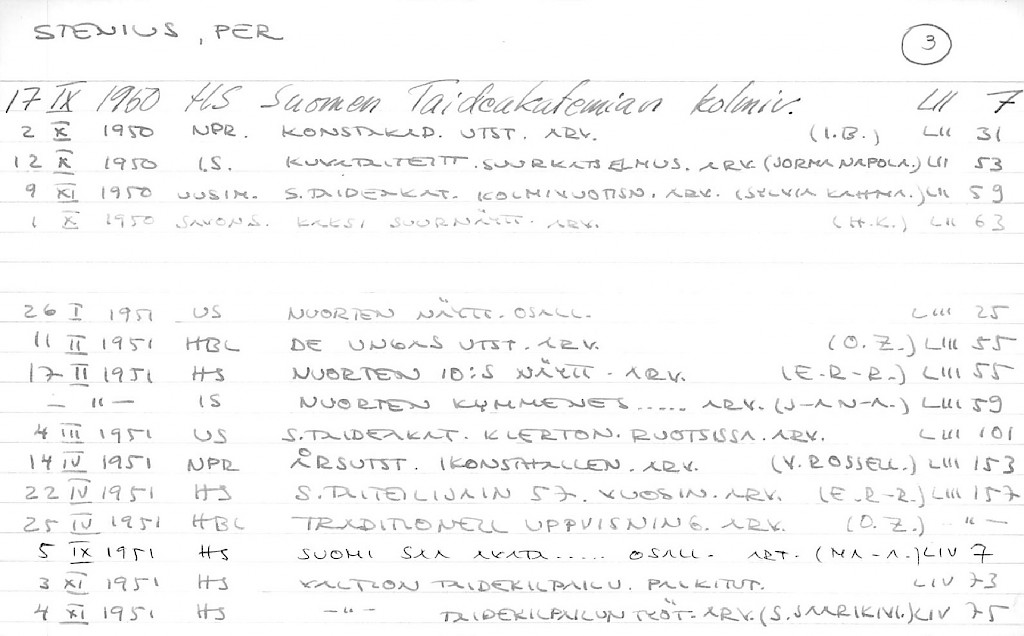 STENIUS, PER 3
17 IX 1960 HS Suomen Taideakatemian kolmiv. LII 7
2 X 1950 NPR. KONSTAKAD. UTST. ARV. (I.B.) LII 31
12 X 1950 I.S. KUVATAITEITT. SUURKATSELMUS. ARV. (JORMA NAPOLA.) LII 53
9 XI 1950 UUSIM. S.TAIDEAKAT. KOLMIVUOTISN. ARV. (SYLVIA KAHMA.) LII 59
1 X 1950 SAVONS. KAKSI SUURNÄYTT. ARV. (H.K.) LII 63
26 I 1951 US NUORTEN NÄYTT. OSALL. LIII 25
11 II 1951 HBL DE UNGAS UTST. ARV. (O.Z.) LIII 55
17 II 1951 HS NUORTEN 10:S NÄYTT. ARV. (E-R-R.) LIII 55
— " — IS NUORTEN KYMMENES..... ARV. (J-A N-A.) LIII 59
4 III 1951 US S.TAIDEAKAT. KIERTON. RUOTSISSA. ARV. LIII 101
14 IV 1951 NPR ÅRSUTST. I KONSTHALLEN. ARV. (V. ROSSELL.) LIII 153
22 IV 1951 HS S.TAITEILIJAIN 57. VUOSIN. ARV. (E-R-R.) LIII 157
25 IV 1951 HBL TRADITIONELL UPPVISNING. ARV. (O.Z.) — " —
5 IX 1951 HS SUOMI SAA AKATA..... OSALL. ART. (MA-A.) LIV 7
3 XI 1951 HS VALTION TAIDEKILPAILU. PALKITUT. LIV 73
4 XI 1951 HS — " — TAIDEKILPAILUN TYÖT. ARV. (S. SAARIKIVI.) LIV 75